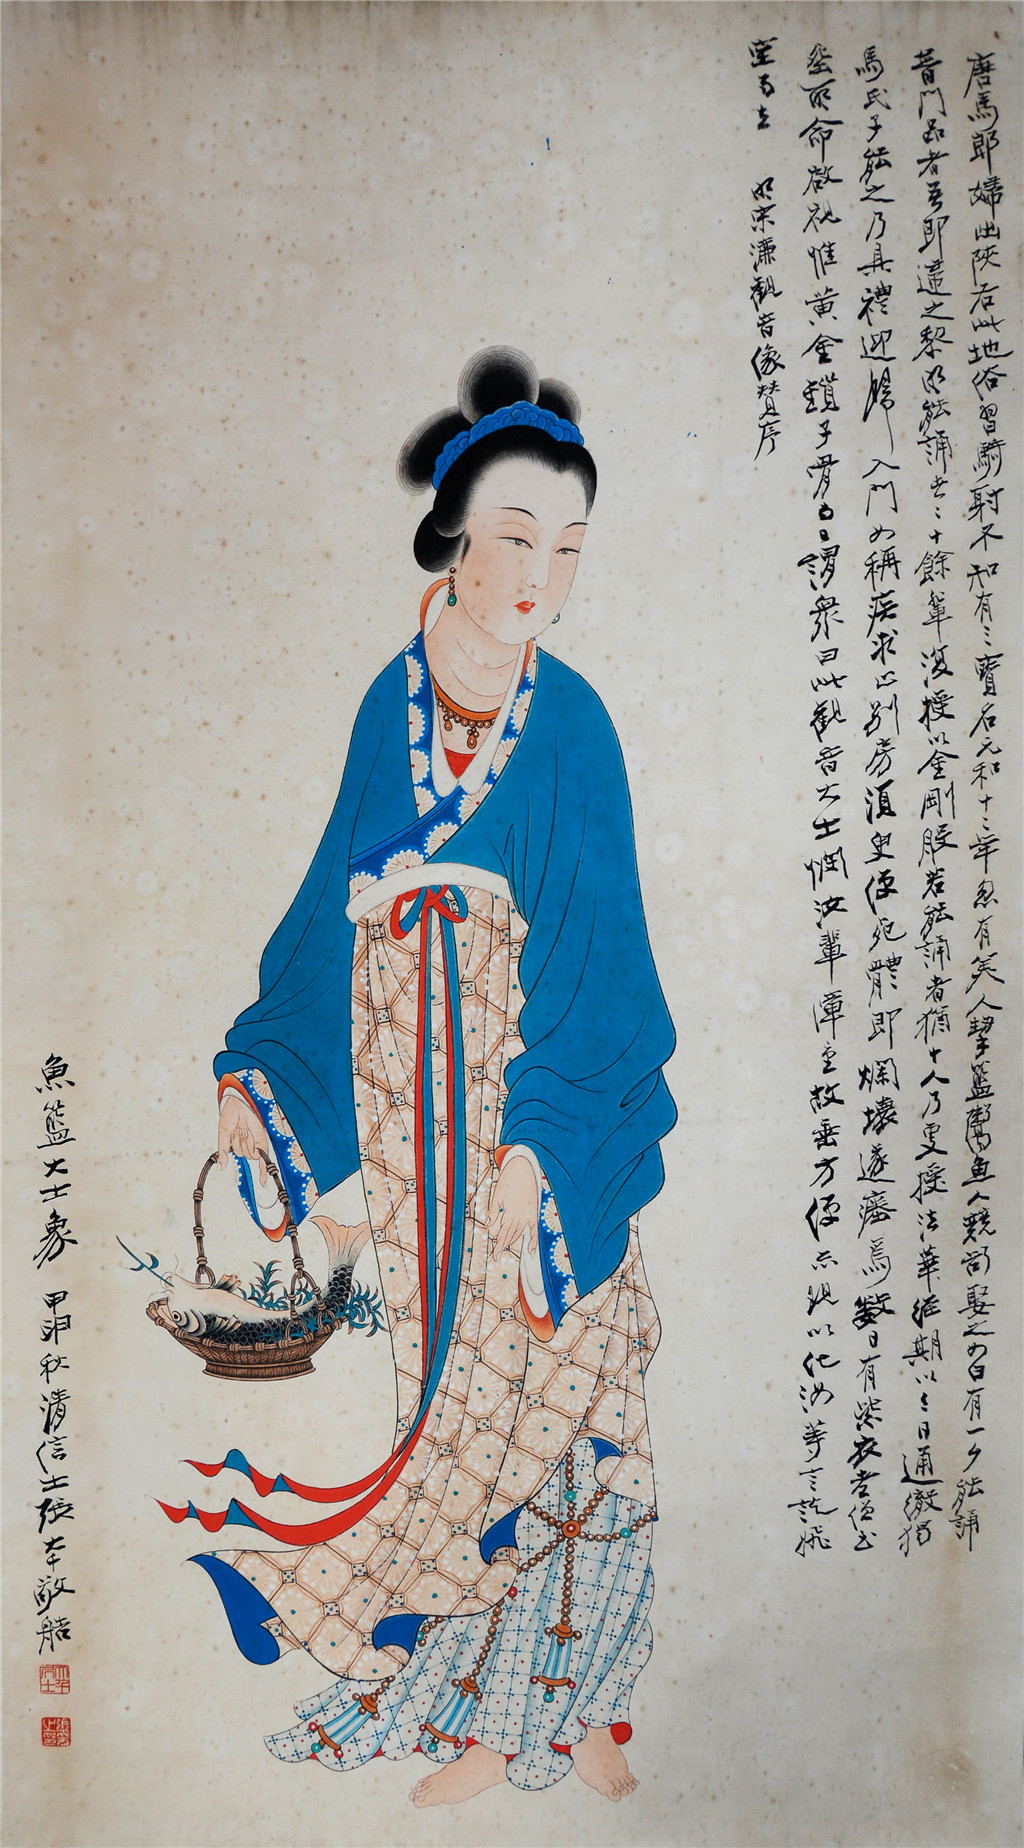 唐馬郎婦出陝右此地俗習騎射不知有三寶名元和十二年忽有美人挈籃鬻魚人競欲娶之女曰有一夕能誦
普門品者吾即適之黎明能誦者二十餘輩復授以金剛般若能誦者猶十人乃更授法華經期以三日通徹獨
馬氏子能之乃具禮迎歸入門女稱疾求止別房須臾便死體即爛壞遂瘞焉數日有紫衣老僧至
瘞所命啟視惟黃金鎖子骨而已謂眾曰此觀音大士憫汝輩障重故垂方便示現以化汝等言訖飛
空而去 明宋濂觀音像贊序
魚籃大士象 甲申秋清信士張大千敬艁
大千居士
張爰之印